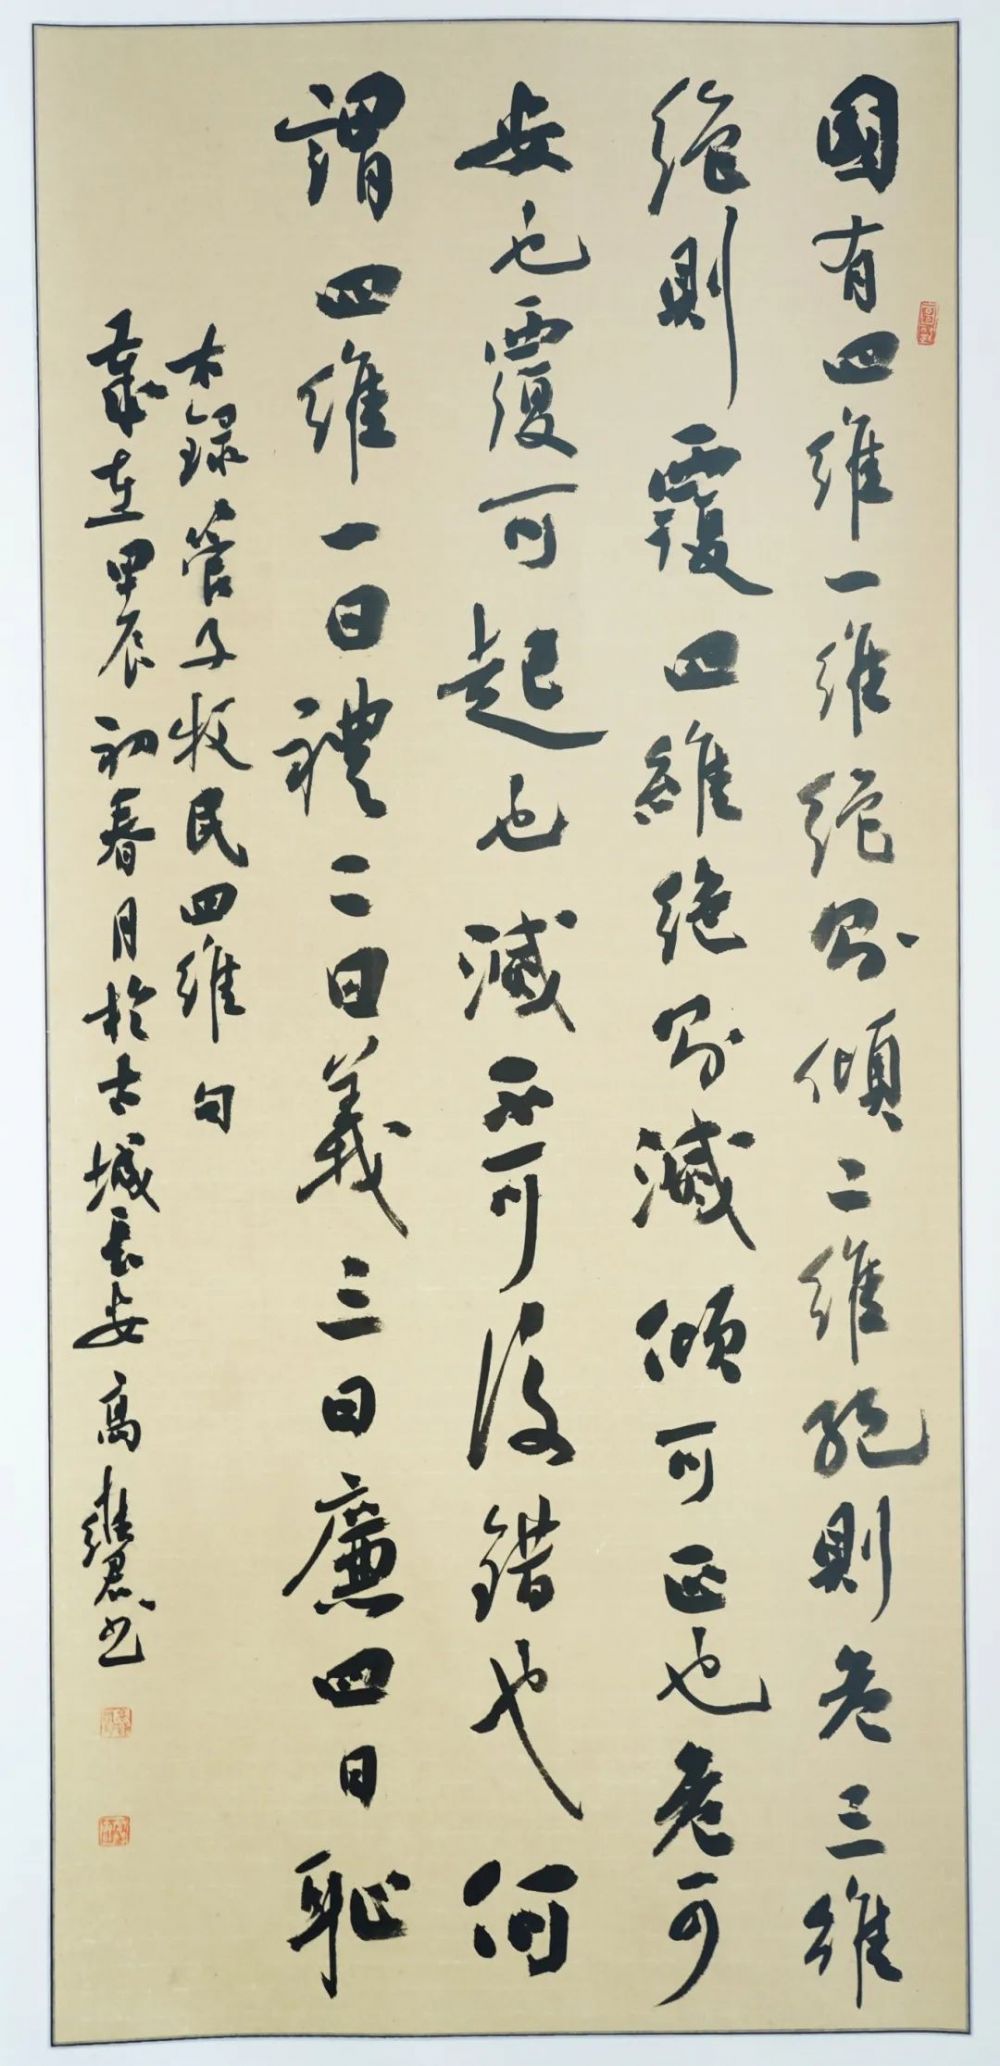 國有四維一維絕則傾二維絕則危三維
絕則覆四維絕則滅傾可正也危可
安也覆可起也滅不可復錯也何
謂四維一曰禮二曰義三曰廉四曰恥
錄管子牧民四維句
歲在甲辰初春月於古城長安高書